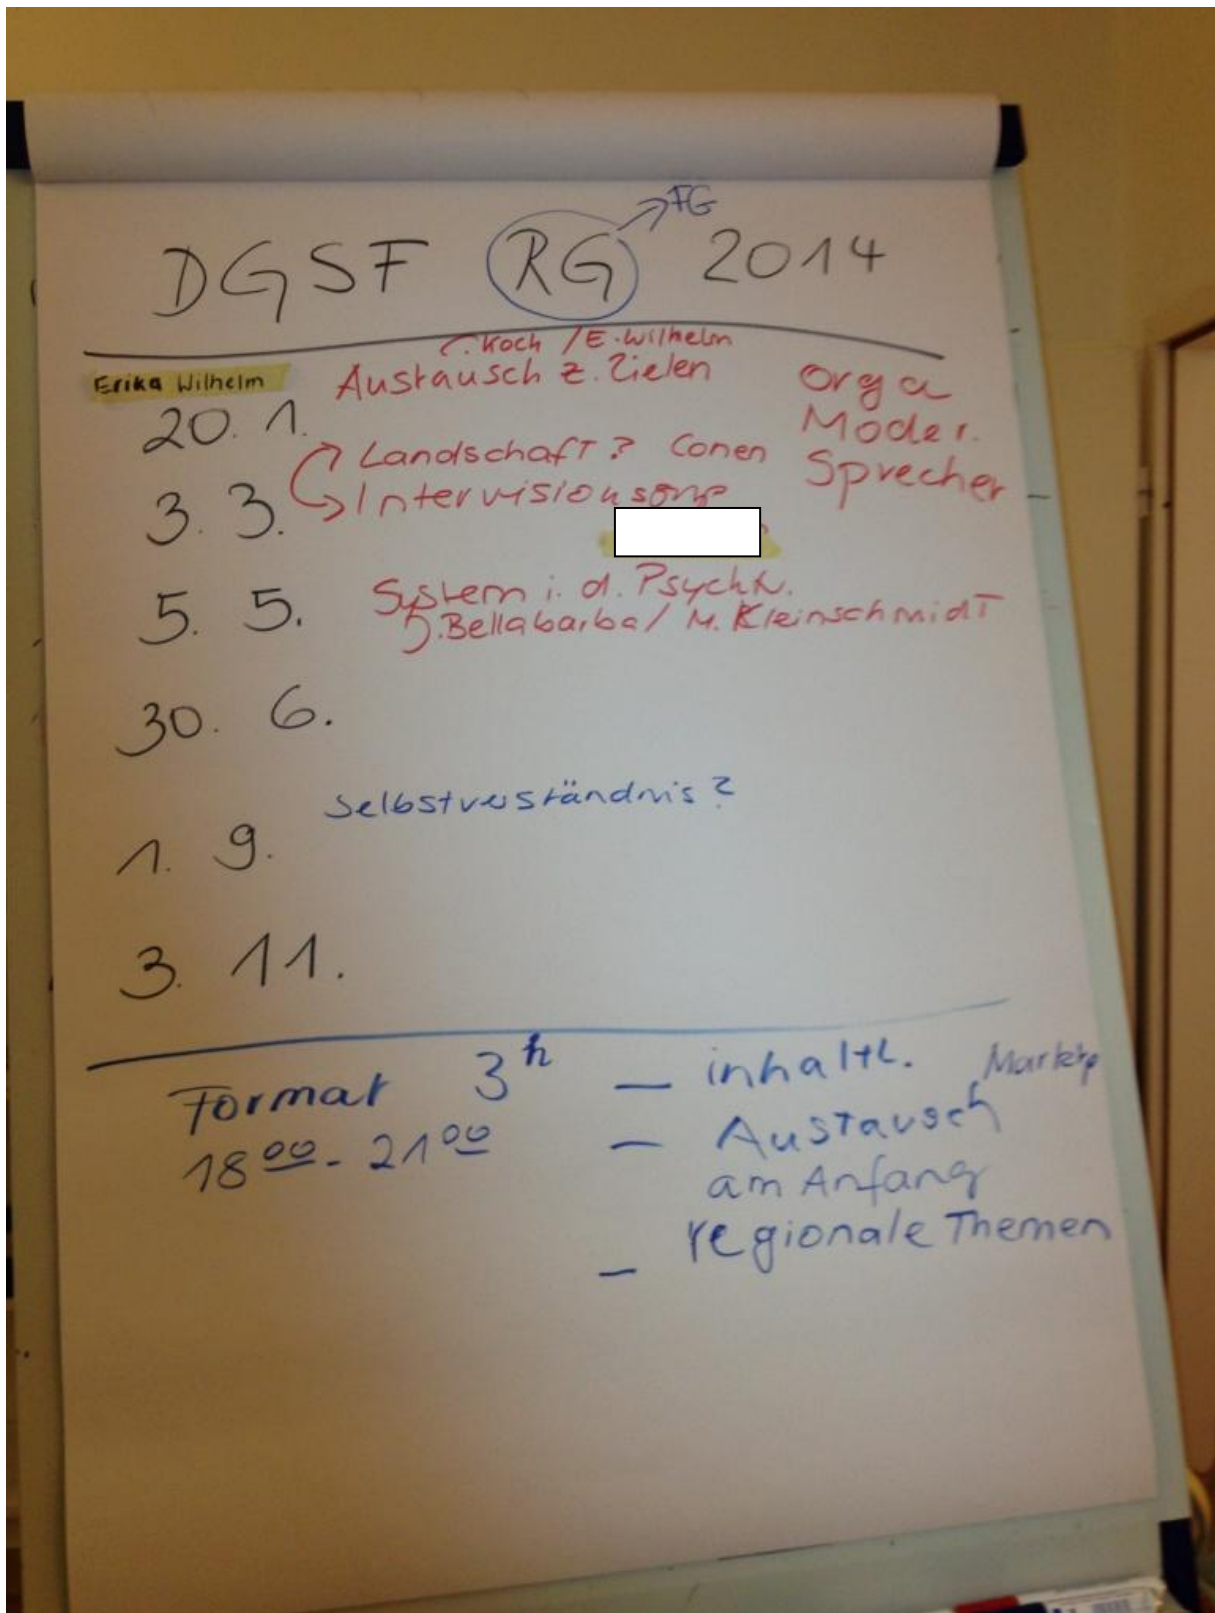 DGSF RG 2014
FG
Koch / E. Wilhelm
Erika Wilhelm
Austausch z. Zielen
Orga
Moder.
Sprecher
20. 1.
Landschaft? Conen
3. 3.
5. 5.
System i. d. Psychk.
J. Bellabarba / M. Kleinschmidt
30. 6.
Selbstverständnis?
1. 9.
3. 11.
Format 3h
18 00 - 21 00
– inhaltl.
– Austausch
am Anfang
– regionale Themen